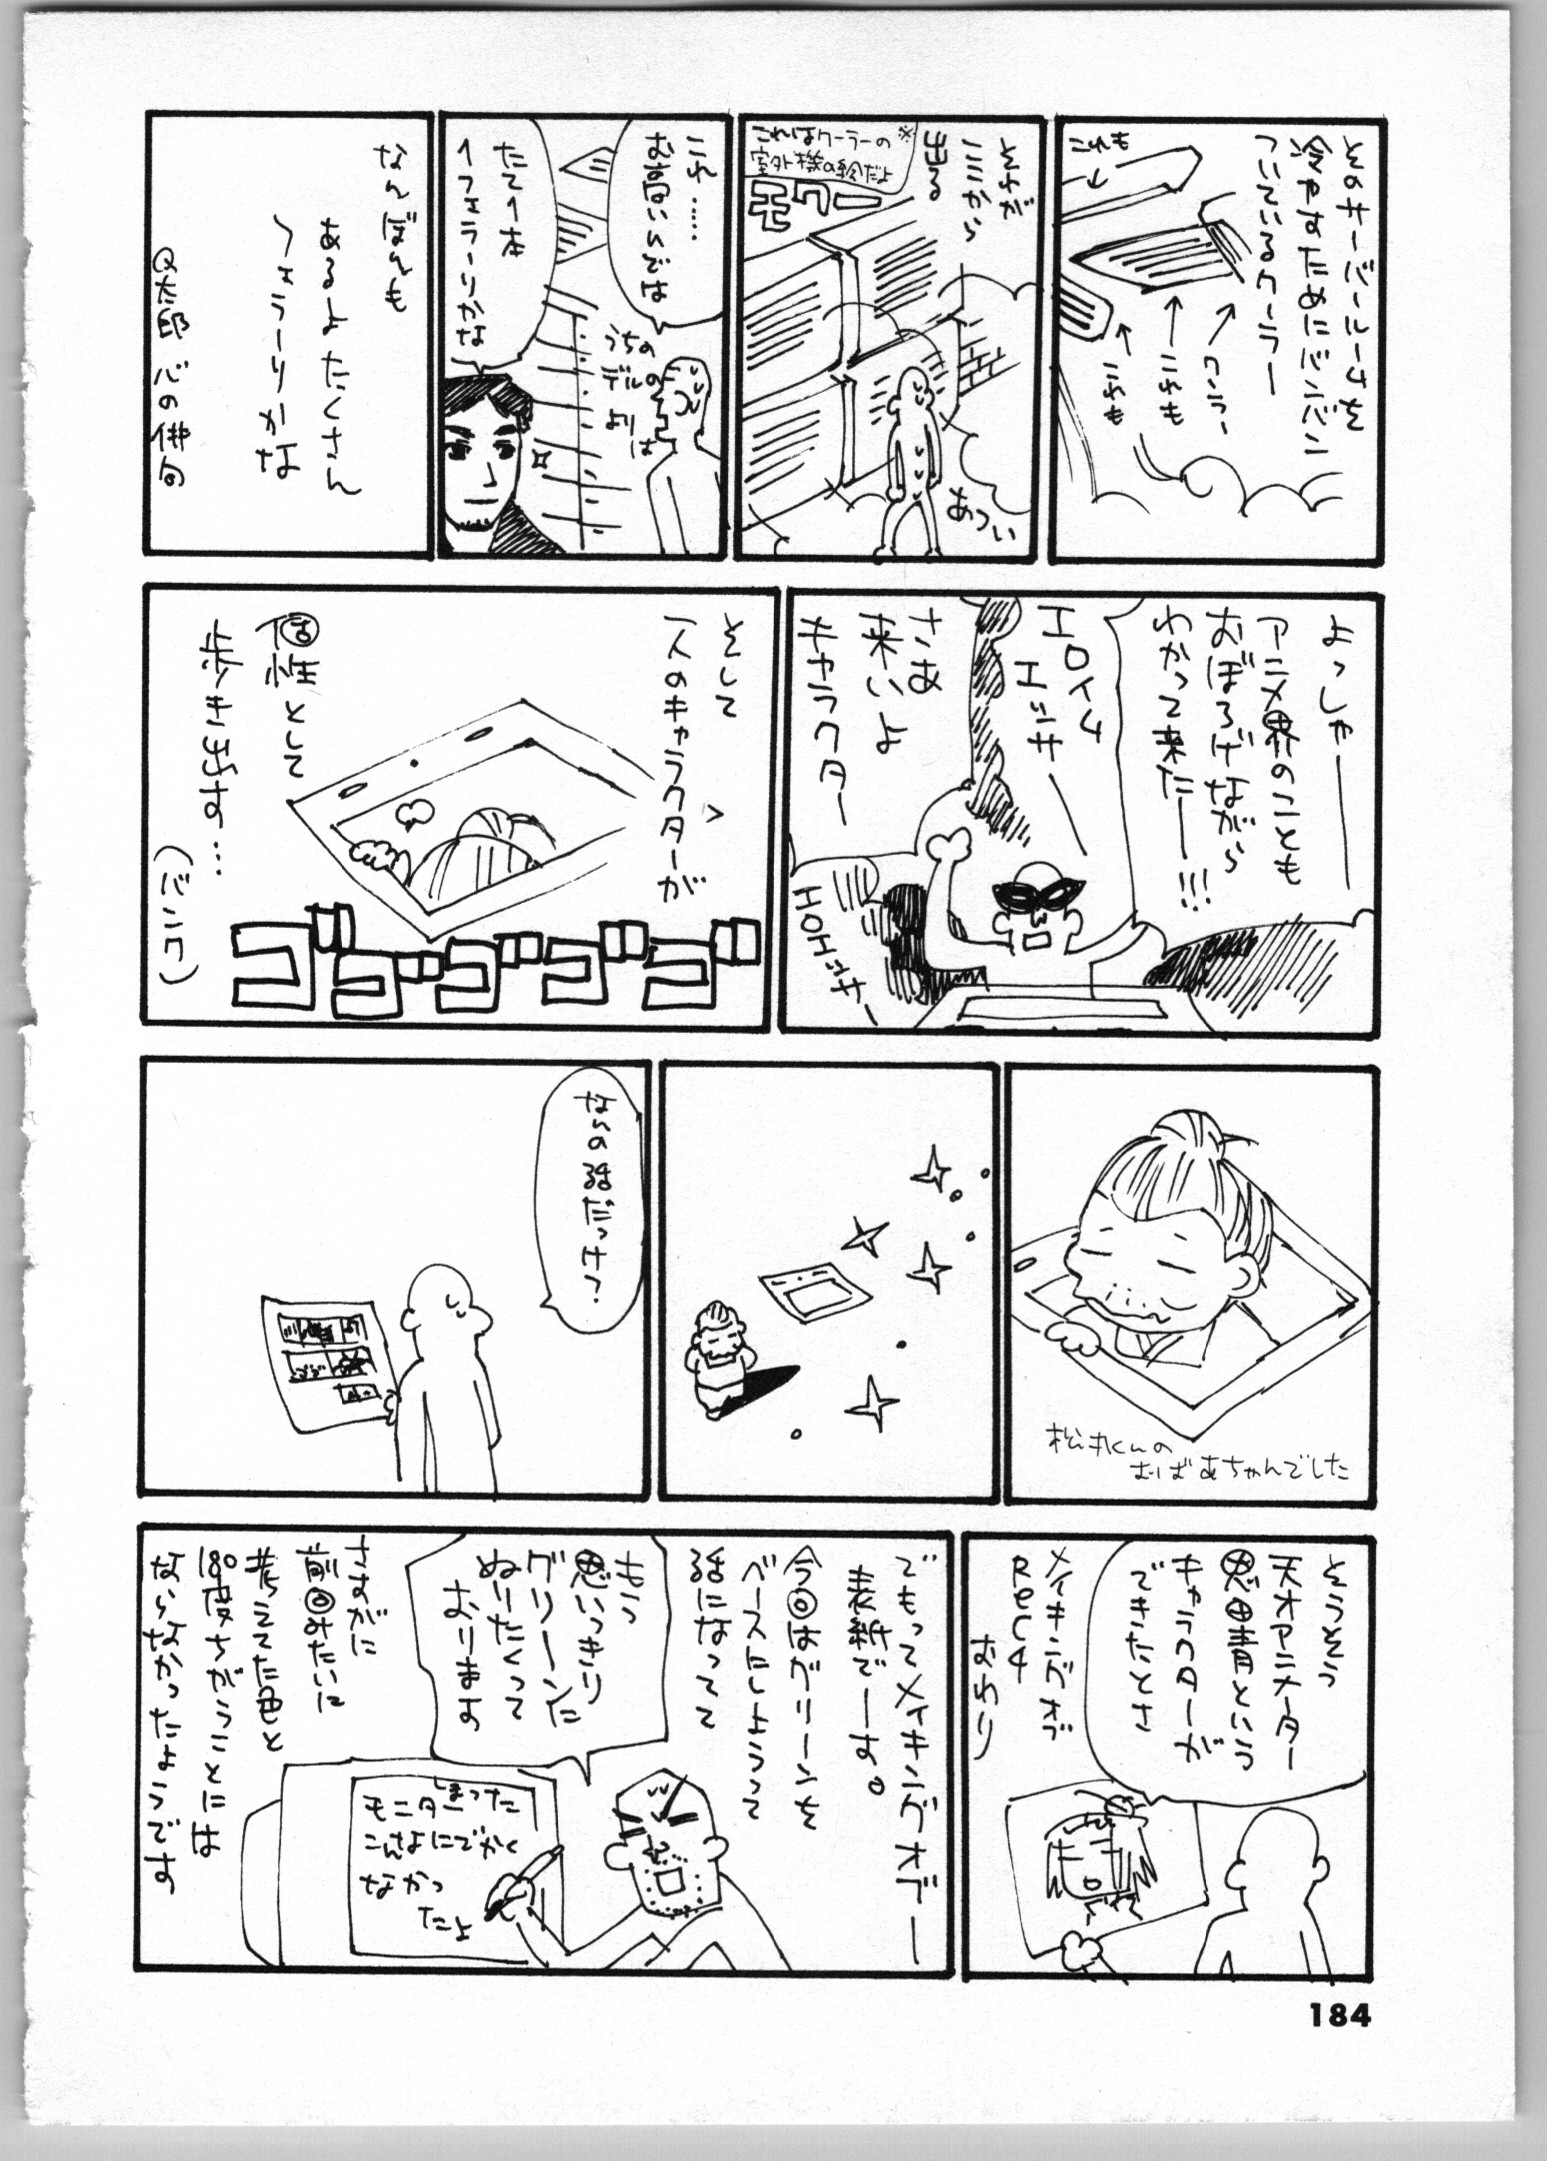 そのサーバールームを
冷やすためにバンバン
ついているクーラー
これも
クーラー
これも
これも
それが
ここから
出る
※これはクーラーの
室外機の絵だよ
モワー
あつい
これ……
お高いんでは
うちの
デルの
よりは
たて1本
1フェラーリかな
なんぼんも
あるよたくさん
フェラーリかな
Q太郎 心の俳句
よっしゃー
アニメ界のことも
おぼろげながら
わかって来たー!!!
エロイム
エッサー
さあ
来いよ
キャラクター
HOHッサー
そして
一人のキャラクターが
個性として
歩き出す…
ゴゴゴゴゴ
松本くんの
おばあちゃんでした
なんの話だっけ?
そうそう
天才アニメーター
思田青という
キャラクターが
できたとさ
メイキングオブ
REC4
おわり
でもってメイキングオブー
表紙でーす。
今回はグリーンを
ベースにしようって
話になってて
もう
思いっきり
グリーンに
ぬりたくって
おります
しまった
モニター
こんなにでかく
なかっ
たよ
さすがに
前回みたいに
考えてた色と
180度ちがうことには
ならなかったようです
184